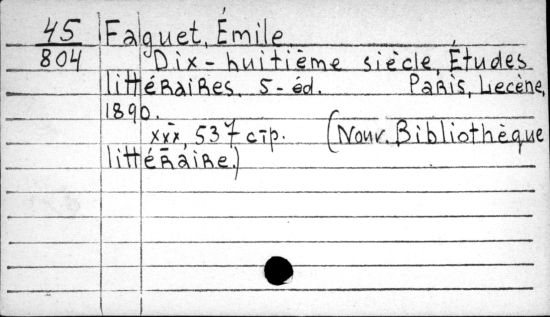 45 Faguet, Émile
804 Dix-huitième siècle, Études
littéraires. 5-éd. Paris, Lecène,
1890.
xxx, 537 стр. (Nouv. Bibliothèque
littéraire.)